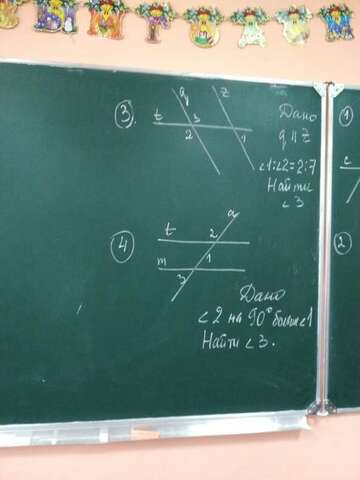 3.
q
z
t
3
2
1
Дано
q || z
∠1:∠2=2:7
Найти
∠3
4
a
t
2
m
1
3
Дано
∠2 на 90° больше ∠1
Найти ∠3.
1
c
2